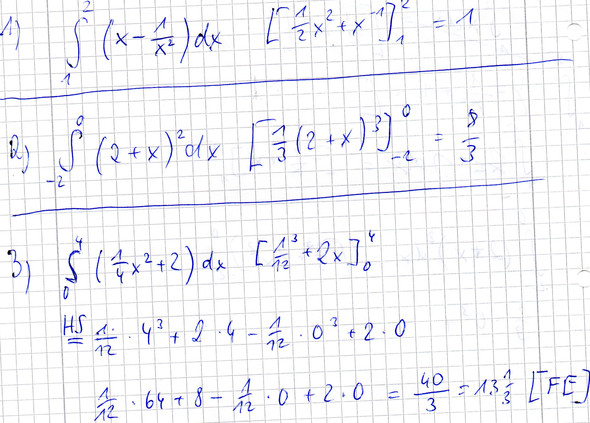 1) ∫₁² (x - 1/x²) dx [1/2 x² + x⁻¹]₁² = 1
2) ∫₋₂⁰ (2+x)² dx [1/3 (2+x)³]₋₂⁰ = 8/3
3) ∫₀⁴ (1/4 x² + 2) dx [1³/12 + 2x]₀⁴
HS 1/12 · 4³ + 2 · 4 - 1/12 · 0³ + 2 · 0
1/12 · 64 + 8 - 1/12 · 0 + 2 · 0 = 40/3 = 13 1/3 [FE]